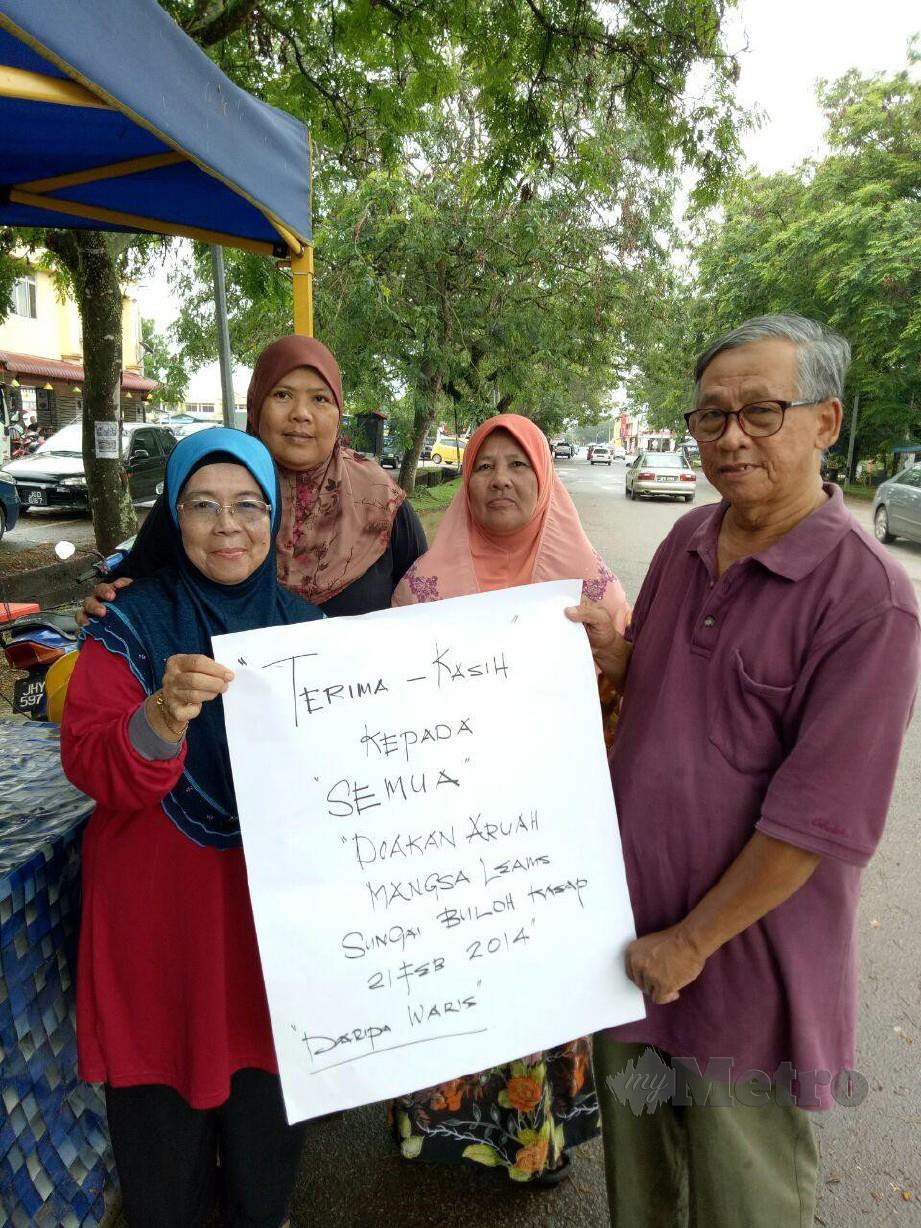 "TERIMA - KASIH"
KEPADA
"SEMUA"
"DOAKAN ARUAH
MANGSA LEAMS
SUNGAI BULOH KASAP
21 FEB 2014"
"DARIPA WARIS"
JHY
597
myMetro